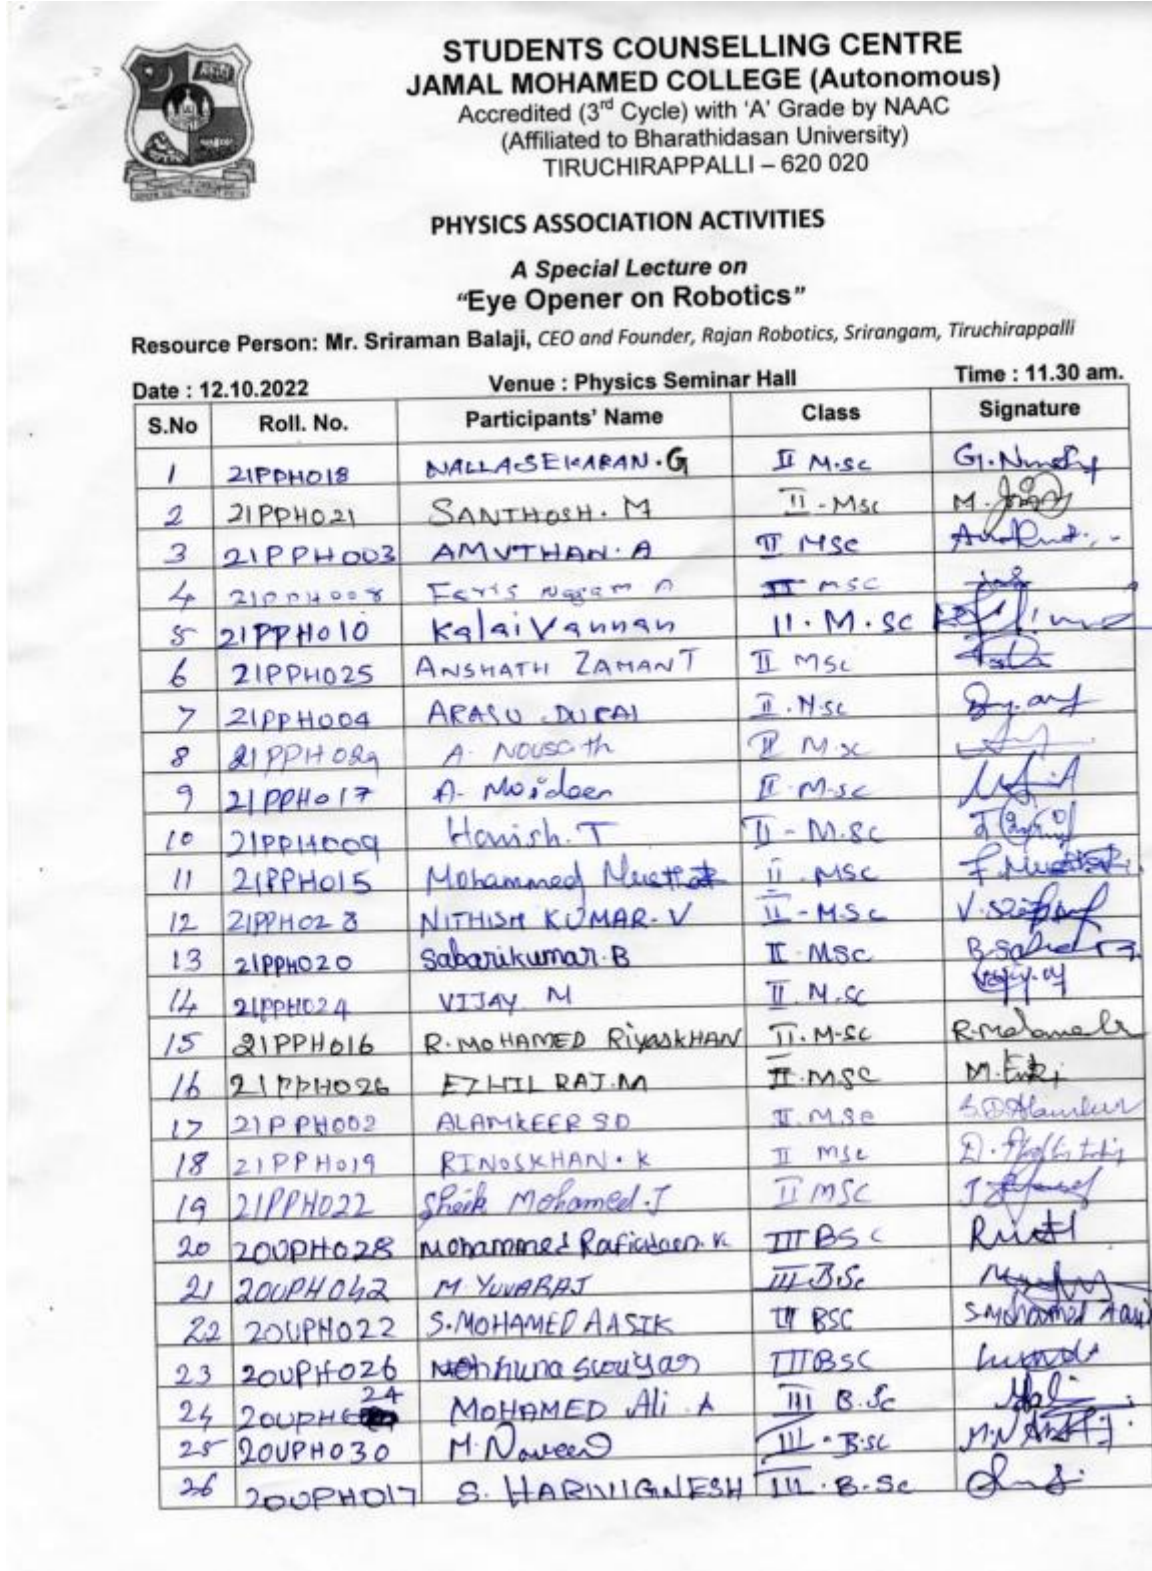 STUDENTS COUNSELLING CENTRE
JAMAL MOHAMED COLLEGE (Autonomous)
Accredited (3rd Cycle) with 'A' Grade by NAAC
(Affiliated to Bharathidasan University)
TIRUCHIRAPPALLI – 620 020
PHYSICS ASSOCIATION ACTIVITIES
A Special Lecture on
"Eye Opener on Robotics"
Resource Person: Mr. Sriraman Balaji, CEO and Founder, Rajan Robotics, Srirangam, Tiruchirappalli
Date : 12.10.2022 Venue : Physics Seminar Hall Time : 11.30 am.
S.No Roll. No. Participants' Name Class Signature
1 21PPH018 NALLASEKARAN.G II M.sc
2 21PPH021 SANTHOSH. M II - Msc
3 21PPH003 AMUTHAN. A II MSc
4 21PPH008 Faris II MSC
5 21PPH010 Kalai Vannan II. M. SC
6 21PPH025 ANSHATH ZAMAN T II MSc
7 21PPH004 ARASU DURAI II. M.sc
8 21PPH029 A. Nousath II M.sc
9 21PPH017 A. Moideen II M.sc
10 21PPH009 Harish. T II - M.Sc
11 21PPH015 Mohammed II . MSC
12 21PPH028 NITHISH KUMAR. V II - M.Sc
13 21PPH020 Sabarikumar.B II. MSC
14 21PPH024 VIJAY M II. M.SC
15 21PPH016 R. MOHAMED RiyasKHAN II. M.SC
16 21PPH026 EZHIL RAJ.M II. MSC
17 21PPH002 ALAMKEER SD II. M.Sc
18 21PPH019 RINOSKHAN. K II MSc
19 21PPH022 Sheik Mohamed.J II MSC
20 20UPH028 Mohammed Rafiudeen. K III BSC
21 20UPH042 M. YUVARAJ III B.Sc
22 20UPH022 S.MOHAMED AASIK III BSC S.Mohamed Aasi
23 20UPH026 III BSC
24 20UPH024 MOHAMED Ali A III B.Sc
25 20UPH030 M. Naveen III. B.sc
26 20UPH017 S. HARIVIGNESH III. B.Sc